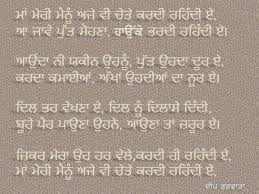 ਮਾਂ ਮੇਰੀ ਮੈਨੂੰ ਅਜੇ ਵੀ ਚੇਤੇ ਕਰਦੀ ਰਹਿੰਦੀ ਏ,
ਆ ਜਾਵੇ ਪੁੱਤ ਮੋਹਣਾ, ਹਾਉਂਕੇ ਭਰਦੀ ਰਹਿੰਦੀ ਏ।
ਆਉਂਦਾ ਨੀ ਯਕੀਨ ਉਹਨੂੰ, ਪੁੱਤਰ ਉਹਦਾ ਦੂਰ ਏ,
ਕਰਦਾ ਕਮਾਈਆਂ, ਅੱਖਾਂ ਉਹਦੀਆਂ ਦਾ ਨੂਰ ਏ।
ਦਿਲ ਤਰ ਵੇਖਣਾ ਏ, ਦਿਲ ਨੂੰ ਦਿਲਾਸੇ ਦਿੰਦੀ,
ਬੂਹੇ ਪੈਰ ਪਾਉਣਾ ਉਹਨੇ, ਆਉਣਾ ਤਾਂ ਜ਼ਰੂਰ ਏ।
ਜ਼ਿਕਰ ਮੇਰਾ ਉਹ ਹਰ ਵੇਲੇ,ਕਰਦੀ ਹੀ ਰਹਿੰਦੀ ਏ,
ਮਾਂ ਮੇਰੀ ਮੈਨੂੰ ਅਜੇ ਵੀ ਚੇਤੇ ਕਰਦੀ ਰਹਿੰਦੀ ਏ,
ਦੀਪ